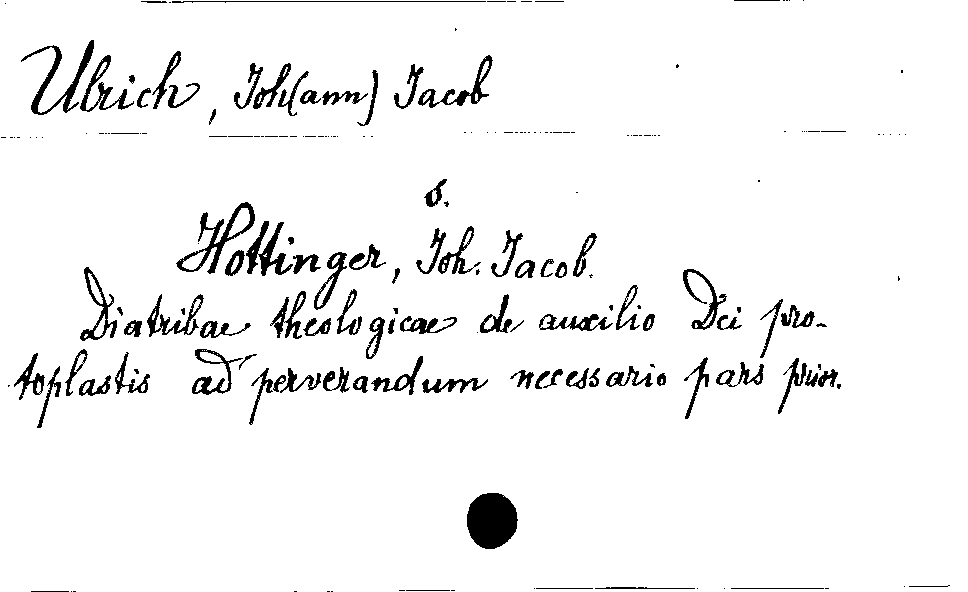 Ulrich, Joh(ann) Jacob
s.
Hottinger, Joh. Jacob.
Diatribae theologicae de auxilio Dei pro-
toplastis ad perverandum necessario pars prior.